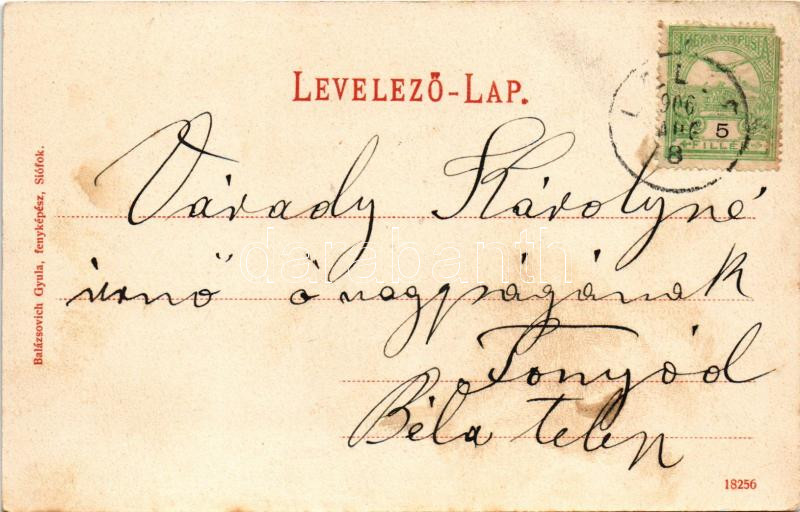 LEVELEZŐ-LAP.
MAGYAR KIR. POSTA
5
FILLÉR
906
AUG
8
Várady Károlyné
úrnő ő nagyságának
Fonyód
Béla telep
Balázsovich Gyula, fenyképész, Siófok.
18256
darabanth